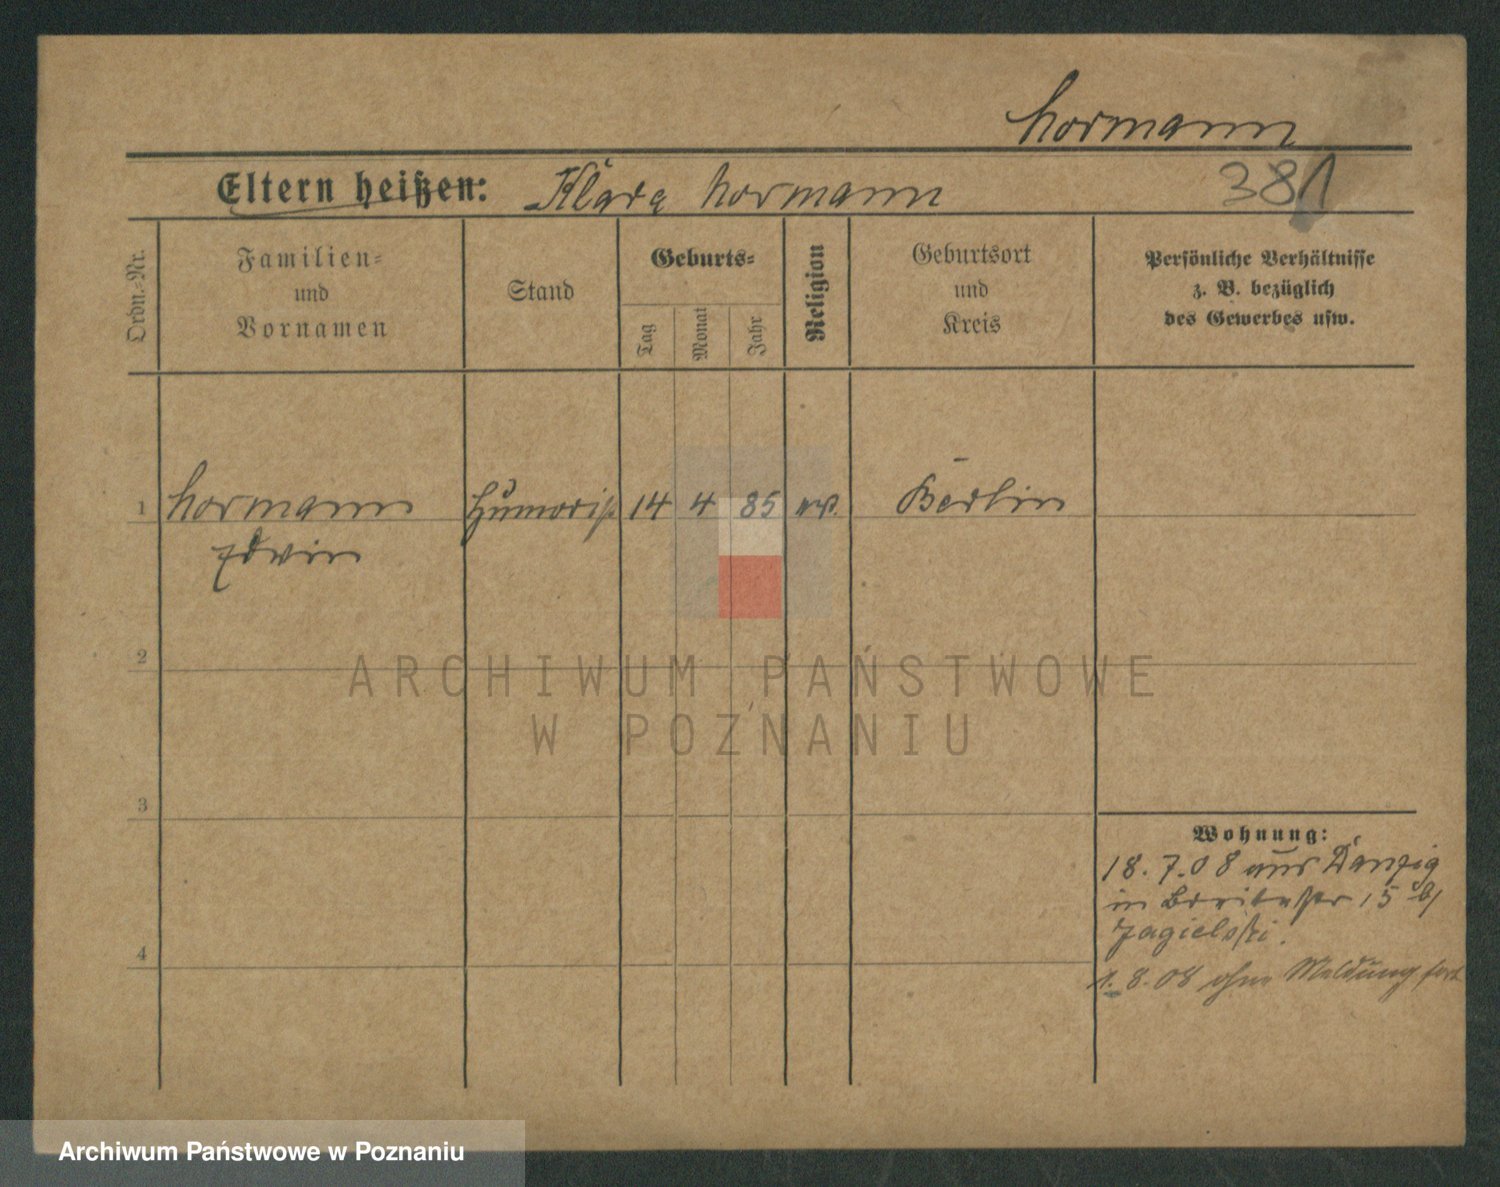 Hormann
381
Eltern heißen: Klara Hormann
Ordn.-Nr.
Familien-
und
Vornamen
Stand
Geburts-
Tag
Monat
Jahr
Religion
Geburtsort
und
Kreis
Persönliche Verhältnisse
z. B. bezüglich
des Gewerbes usw.
1 Hormann Humorist 14 4 85 ev. Berlin
Edwin
2
3
4
Wohnung:
18.7.08 aus Danzig
in Breitestr 15 b/
Jagielski.
1.8.08 ohne Meldung fort
ARCHIWUM PAŃSTWOWE
W POZNANIU
Archiwum Państwowe w Poznaniu